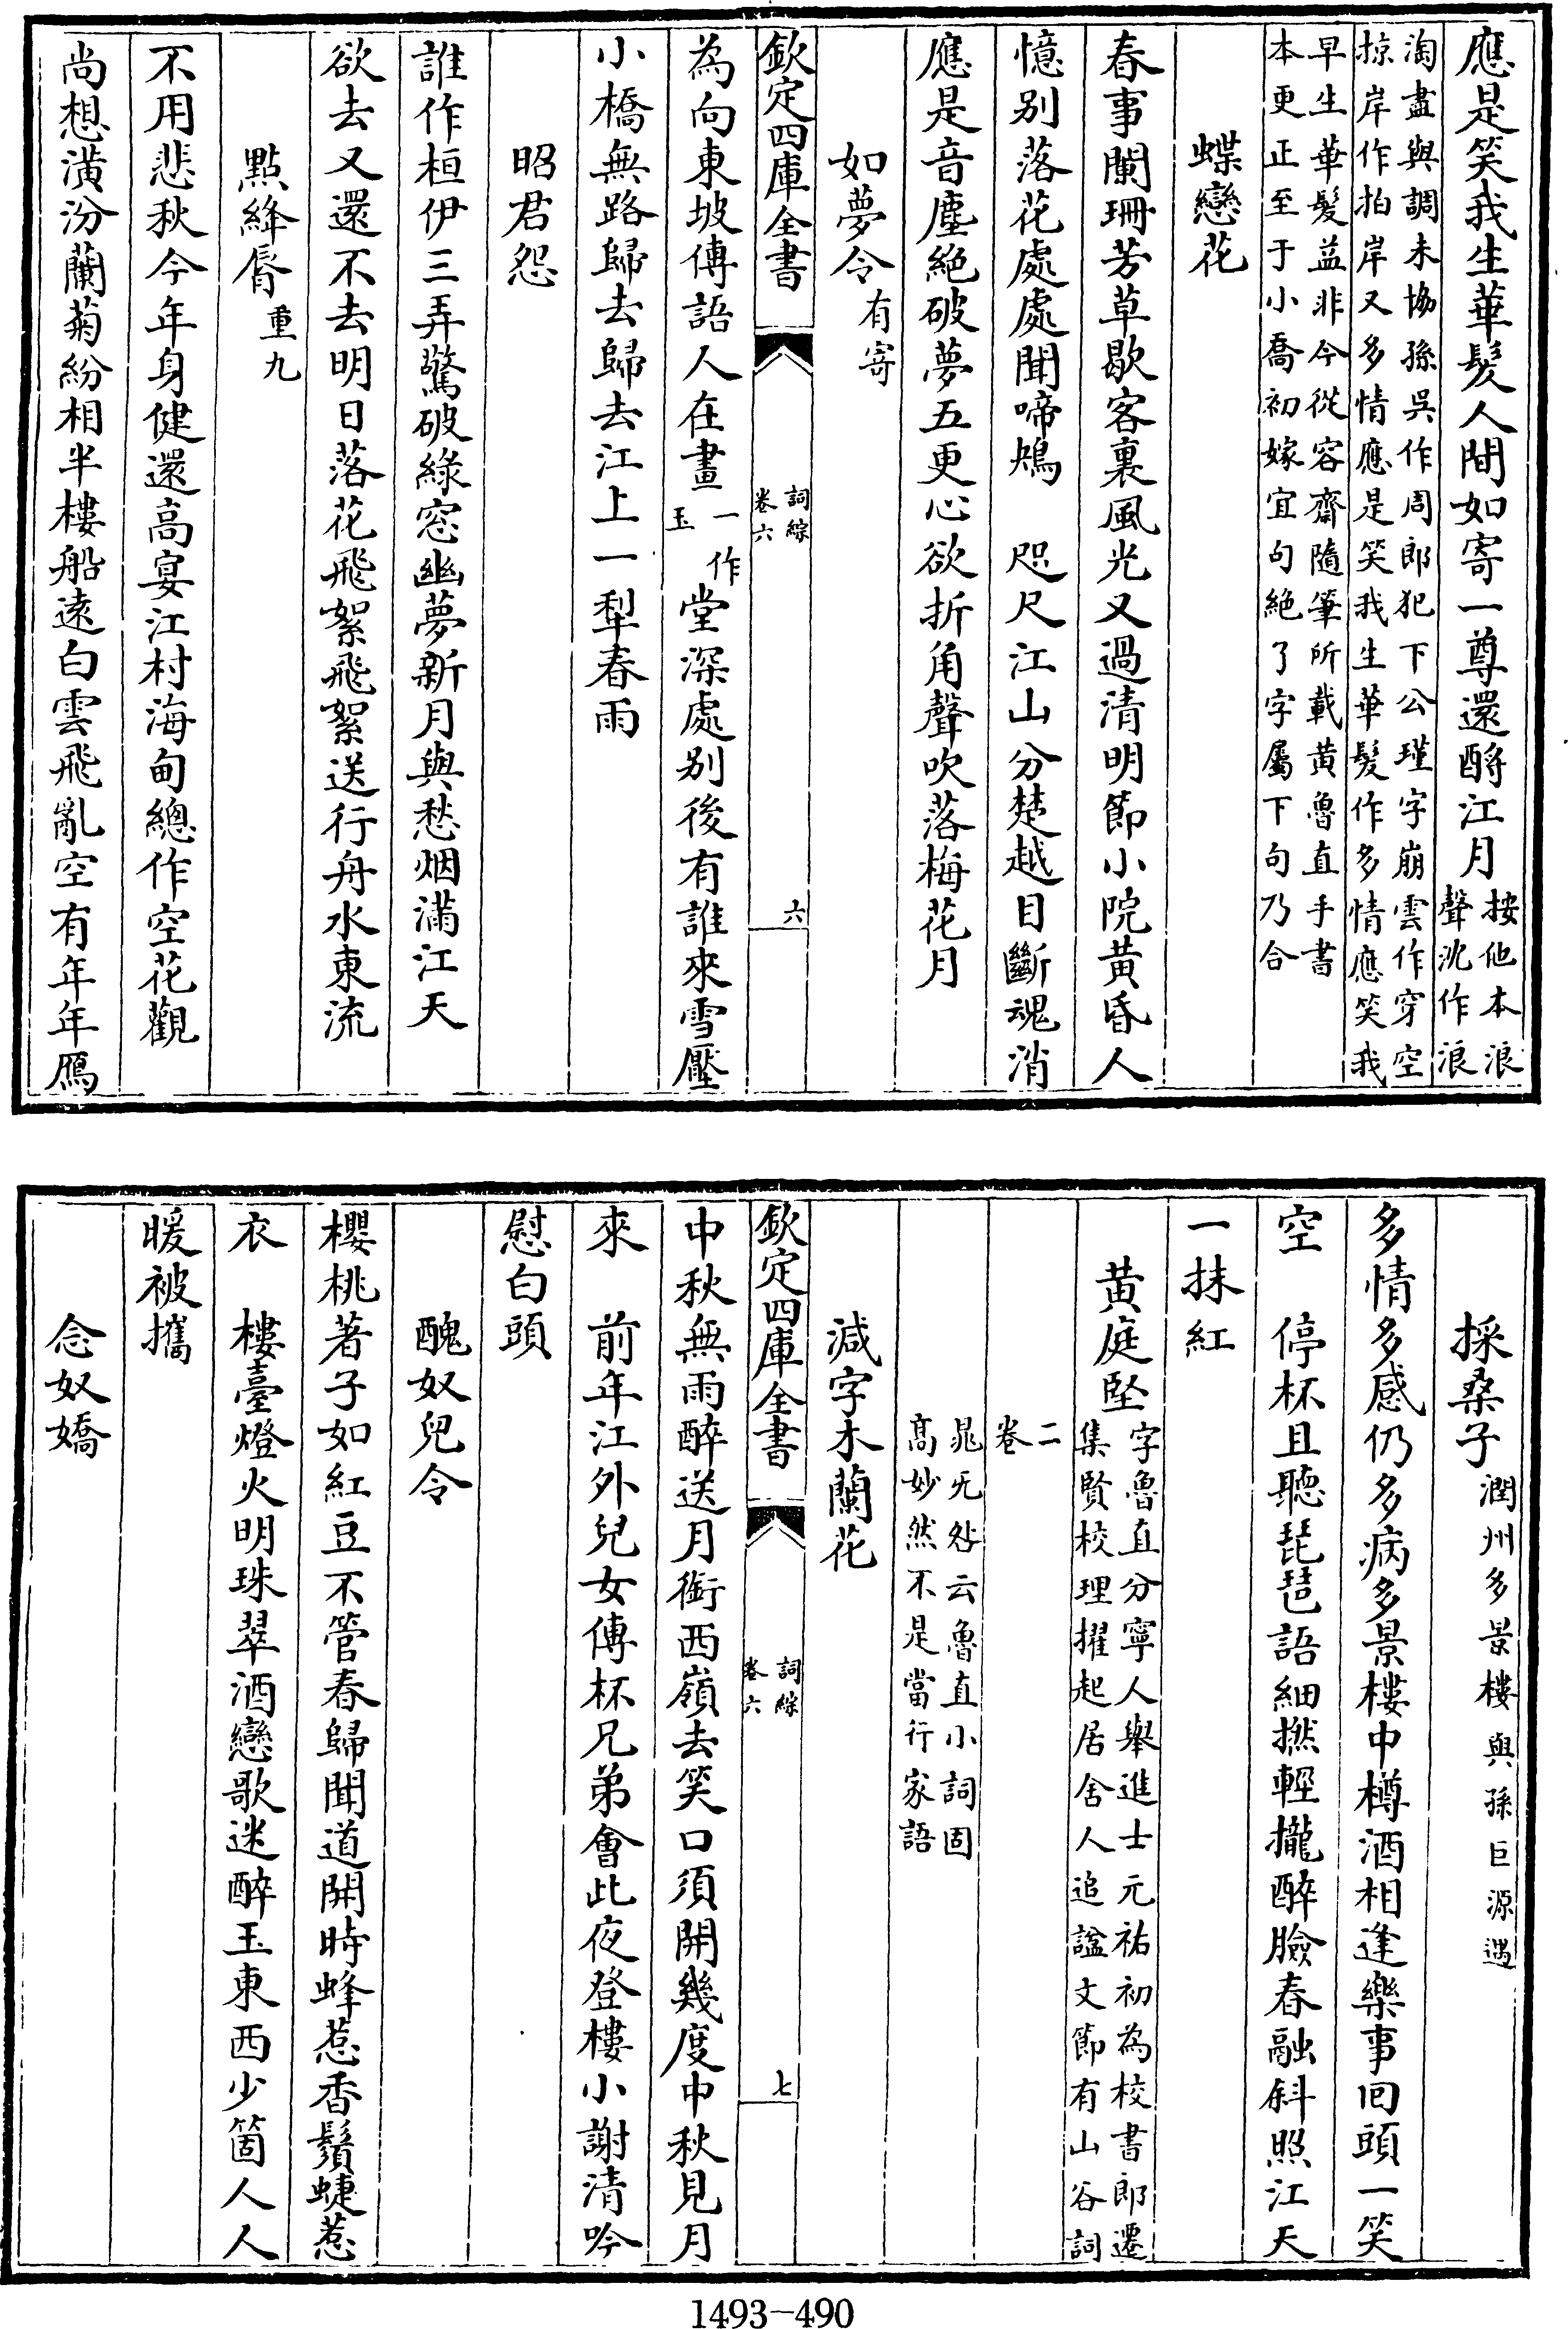 應是笑我生華髮人間如寄一尊還酹江月按他本浪聲沈作浪
淘盡與調未協孫吳作周郎犯下公瑾字崩雲作穿空
掠岸作拍岸又多情應是笑我生華髮作多情應笑我
早生華髮益非今從容齋隨筆所載黃魯直手書
本更正至于小喬初嫁宜句絶了字屬下句乃合
蝶戀花
春事闌珊芳草歇客裏風光又過清明節小院黃昏人
憶别落花處處聞啼鴂　咫尺江山分楚越目斷魂消
應是音塵絶破夢五更心欲折角聲吹落梅花月
如夢令有寄
欽定四庫全書
詞綜
卷六
六
為向東坡傳語人在畫一作玉堂深處别後有誰來雪壓
小橋無路歸去歸去江上一犁春雨
昭君怨
誰作桓伊三弄驚破緑窓幽夢新月與愁烟滿江天
欲去又還不去明日落花飛絮飛絮送行舟水東流
點絳脣重九
不用悲秋今年身健還高宴江村海甸總作空花觀
尚想潢汾蘭菊紛相半樓船遠白雲飛亂空有年年鴈
採桑子潤州多景樓與孫巨源遇
多情多感仍多病多景樓中樽酒相逢樂事回頭一笑
空　停杯且聽琵琶語細撚輕攏醉臉春融斜照江天
一抹紅
黃庭堅字魯直分寧人舉進士元祐初為校書郎遷
集賢校理擢起居舍人追諡文節有山谷詞
二卷
晁无咎云魯直小詞固
高妙然不是當行家語
減字木蘭花
欽定四庫全書
詞綜
卷六
七
中秋無雨醉送月銜西嶺去笑口須開幾度中秋見月
來　前年江外兒女傳杯兄弟會此夜登樓小謝清吟
慰白頭
醜奴兒令
櫻桃著子如紅豆不管春歸聞道開時蜂惹香鬚蜨惹
衣　樓臺燈火明珠翠酒戀歌迷醉玉東西少箇人人
暖被攜
念奴嬌
1493-490